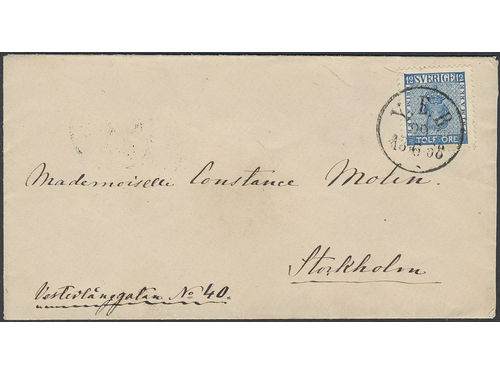 12 SVERIGE 12
TOLF ÖRE
Mademoiselle Constance Molin.
Stockholm
Vesterlånggatan No 40.